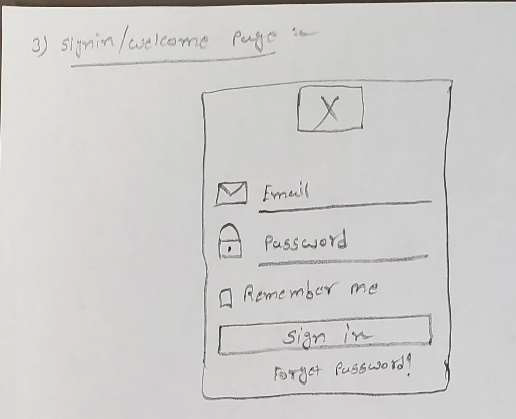 3) signin/welcome page :-
X
Email
Password
Remember me
Sign in
Forget Password?